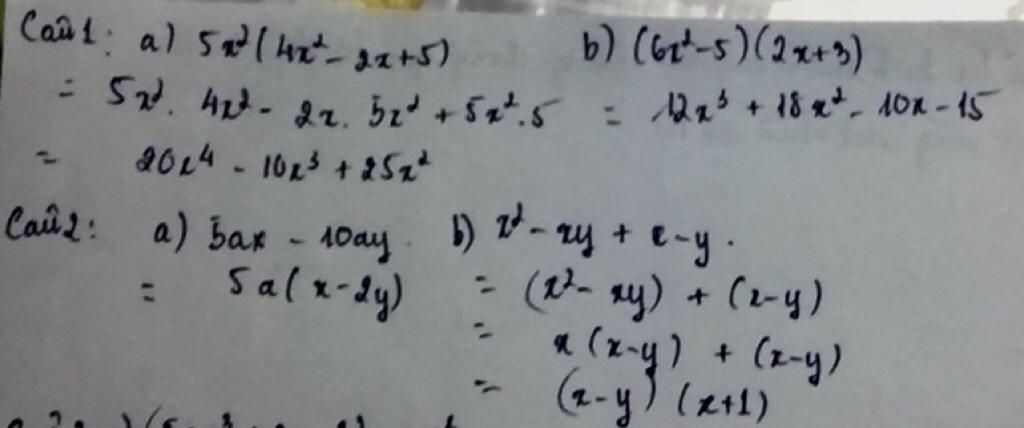 Câu 1: a) 5x²(4x² - 2x+5) b) (6x²-5)(2x+3)
= 5x². 4x² - 2x. 5x² + 5x².5 = 12x³ + 18x² - 10x - 15
= 20x⁴ - 10x³ + 25x²
Câu 2: a) 5ax - 10ay. b) x² - xy + x - y.
= 5a(x-2y) = (x² - xy) + (x-y)
= x(x-y) + (x-y)
= (x-y) (x+1)